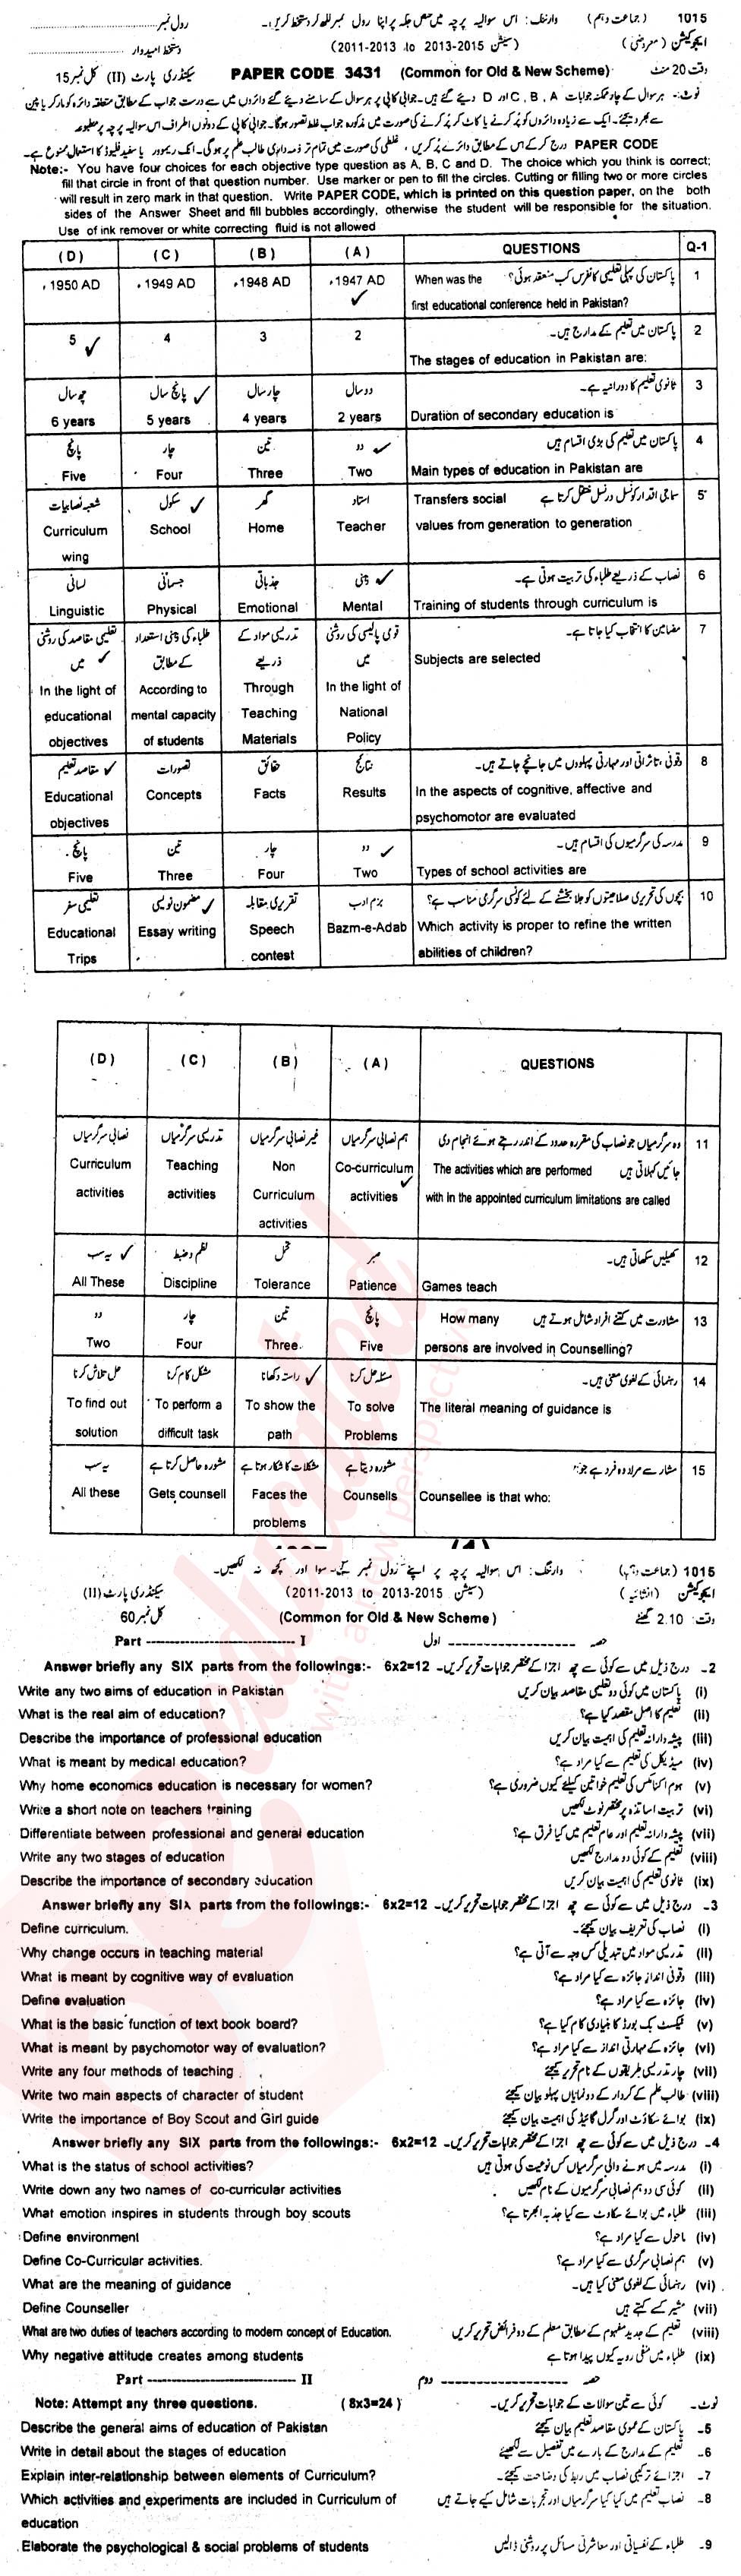 1015 (جماعت دہم) وارننگ: اس سوالیہ پرچہ میں مختص جگہ پر اپنا رول نمبر لکھ کر دستخط کریں۔ رول نمبر
ایجوکیشن (معروضی) (سیشن 2013-2015 to 2011-2013) دستخط امیدوار
وقت 20 منٹ PAPER CODE 3431 (Common for Old & New Scheme) سیکنڈری پارٹ (II) کل نمبر 15
نوٹ:۔ ہر سوال کے چار ممکنہ جوابات A, B, C اور D دیئے گئے ہیں۔ جوابی کاپی پر ہر سوال کے سامنے دیئے گئے دائروں میں سے درست جواب کے مطابق متعلقہ دائرہ کو مارکر یا پین
سے بھر دیجئے۔ ایک سے زیادہ دائروں کو پُر کرنے یا کاٹ کر پُر کرنے کی صورت میں مذکورہ جواب غلط تصور ہوگا۔ جوابی کاپی کے دونوں اطراف اس سوالیہ پرچہ پر مطبوعہ
PAPER CODE درج کر کے اس کے مطابق دائرے پُر کریں، غلطی کی صورت میں تمام تر ذمہ داری طالب علم پر ہوگی۔ انک ریموور یا سفید فلیوڈ کا استعمال ممنوع ہے۔
Note:- You have four choices for each objective type question as A, B, C and D. The choice which you think is correct;
fill that circle in front of that question number. Use marker or pen to fill the circles. Cutting or filling two or more circles
will result in zero mark in that question. Write PAPER CODE, which is printed on this question paper, on the both
sides of the Answer Sheet and fill bubbles accordingly, otherwise the student will be responsible for the situation.
Use of ink remover or white correcting fluid is not allowed
(D) (C) (B) (A) QUESTIONS Q-1
1950 AD 1949 AD 1948 AD 1947 AD When was the پاکستان کی پہلی تعلیمی کانفرنس کب منعقد ہوئی؟ 1
first educational conference held in Pakistan?
5 4 3 2 پاکستان میں تعلیم کے مدارج ہیں۔ 2
The stages of education in Pakistan are:
چھ سال پانچ سال چار سال دو سال ثانوی تعلیم کا دورانیہ ہے۔ 3
6 years 5 years 4 years 2 years Duration of secondary education is
پانچ چار تین دو پاکستان میں تعلیم کی بڑی اقسام ہیں 4
Five Four Three Two Main types of education in Pakistan are
شعبہ نصابیات سکول گھر استاد Transfers social سماجی اقدار کو نسل در نسل منتقل کرتا ہے 5
Curriculum School Home Teacher values from generation to generation
wing
لسانی جسمانی جذباتی ذہنی نصاب کے ذریعے طلباء کی تربیت ہوتی ہے۔ 6
Linguistic Physical Emotional Mental Training of students through curriculum is
تعلیمی مقاصد کی روشنی طلباء کی ذہنی استعداد تدریسی مواد کے قومی پالیسی کی روشنی مضامین کا انتخاب کیا جاتا ہے۔ 7
میں کے مطابق ذریعے میں Subjects are selected
In the light of According to Through In the light of
educational mental capacity Teaching National
objectives of students Materials Policy
مقاصد تعلیم تصورات حقائق نتائج وقوفی، تاثراتی اور مہارتی پہلوؤں میں جانچے جاتے ہیں۔ 8
Educational Concepts Facts Results In the aspects of cognitive, affective and
objectives psychomotor are evaluated
پانچ تین چار دو مدرسہ کی سرگرمیوں کی اقسام ہیں۔ 9
Five Three Four Two Types of school activities are
تعلیمی سفر مضمون نویسی تقریری مقابلہ بزم ادب بچوں کی تحریری صلاحیتوں کو جلا بخشنے کے لئے کونسی سرگرمی مناسب ہے؟ 10
Educational Essay writing Speech Bazm-e-Adab Which activity is proper to refine the written
Trips contest abilities of children?
(D) (C) (B) (A) QUESTIONS
نصابی سرگرمیاں تدریسی سرگرمیاں غیر نصابی سرگرمیاں ہم نصابی سرگرمیاں وہ سرگرمیاں جو نصاب کی مقررہ حدود کے اندر رہتے ہوئے انجام دی 11
Curriculum Teaching Non Co-curriculum The activities which are performed جائیں کہلاتی ہیں
activities activities Curriculum activities with in the appointed curriculum limitations are called
activities
یہ سب نظم و ضبط تحمل صبر کھیلیں سکھاتی ہیں۔ 12
All These Discipline Tolerance Patience Games teach
دو چار تین پانچ How many مشاورت میں کتنے افراد شامل ہوتے ہیں 13
Two Four Three Five persons are involved in Counselling?
حل تلاش کرنا مشکل کام کرنا راستہ دکھانا مسئلہ حل کرنا رہنمائی کے لغوی معنی ہیں۔ 14
To find out To perform a To show the To solve The literal meaning of guidance is
solution difficult task path Problems
یہ سب مشورہ حاصل کرتا ہے مشکلات کا شکار ہوتا ہے مشورہ دیتا ہے مشار سے مراد وہ فرد ہے جو: 15
All these Gets counsell Faces the Counsells Counsellee is that who:
problems
1015 (جماعت دہم) وارننگ: اس سوالیہ پرچہ پر اپنے رول نمبر کے سوا اور کچھ نہ لکھیں۔
ایجوکیشن (انشائیہ) (سیشن 2013-2015 to 2011-2013) سیکنڈری پارٹ (II)
وقت: 2.10 گھنٹے (Common for Old & New Scheme) کل نمبر 60
Part ---------- I حصہ ---------- اول
Answer briefly any SIX parts from the followings:- 6x2=12 2۔ درج ذیل میں سے کوئی سے چھ اجزا کے مختصر جوابات تحریر کریں۔
Write any two aims of education in Pakistan (i) پاکستان میں کوئی دو تعلیمی مقاصد بیان کریں
What is the real aim of education? (ii) تعلیم کا اصل مقصد کیا ہے؟
Describe the importance of professional education (iii) پیشہ دارانہ تعلیم کی اہمیت بیان کریں
What is meant by medical education? (iv) میڈیکل کی تعلیم سے کیا مراد ہے؟
Why home economics education is necessary for women? (v) ہوم اکنامکس کی تعلیم خواتین کیلئے کیوں ضروری ہے؟
Write a short note on teachers training (vi) تربیت اساتذہ پر مختصر نوٹ لکھیں
Differentiate between professional and general education (vii) پیشہ دارانہ تعلیم اور عام تعلیم میں کیا فرق ہے؟
Write any two stages of education (viii) تعلیم کے کوئی دو مدارج لکھیں
Describe the importance of secondary education (ix) ثانوی تعلیم کی اہمیت بیان کریں
Answer briefly any SIX parts from the followings:- 6x2=12 3۔ درج ذیل میں سے کوئی سے چھ اجزا کے مختصر جوابات تحریر کریں۔
Define curriculum. (i) نصاب کی تعریف بیان کیجئے۔
Why change occurs in teaching material (ii) تدریسی مواد میں تبدیلی کس وجہ سے آتی ہے؟
What is meant by cognitive way of evaluation (iii) وقوفی انداز جائزہ سے کیا مراد ہے؟
Define evaluation (iv) جائزہ سے کیا مراد ہے؟
What is the basic function of text book board? (v) ٹیکسٹ بک بورڈ کا بنیادی کام کیا ہے؟
What is meant by psychomotor way of evaluation? (vi) جائزہ کے مہارتی انداز سے کیا مراد ہے؟
Write any four methods of teaching (vii) چار تدریسی طریقوں کے نام تحریر کیجئے
Write two main aspects of character of student (viii) طالب علم کے کردار کے دو نمایاں پہلو بیان کیجئے
Write the importance of Boy Scout and Girl guide (ix) بوائے سکاؤٹ اور گرل گائیڈ کی اہمیت بیان کیجئے
Answer briefly any SIX parts from the followings:- 6x2=12 4۔ درج ذیل میں سے کوئی سے چھ اجزا کے مختصر جوابات تحریر کریں۔
What is the status of school activities? (i) مدرسہ میں ہونے والی سرگرمیاں کس نوعیت کی ہوتی ہیں
Write down any two names of co-curricular activities (ii) کوئی سی دو ہم نصابی سرگرمیوں کے نام لکھیں
What emotion inspires in students through boy scouts (iii) طلباء میں بوائے سکاوٹ سے کیا جذبہ ابھرتا ہے؟
Define environment (iv) ماحول سے کیا مراد ہے؟
Define Co-Curricular activities. (v) ہم نصابی سرگرمی سے کیا مراد ہے؟
What are the meaning of guidance (vi) رہنمائی کے لغوی معنی کیا ہیں۔
Define Counseller (vii) مشیر کسے کہتے ہیں
What are two duties of teachers according to modern concept of Education. (viii) تعلیم کے جدید مفہوم کے مطابق معلم کے دو فرائض تحریر کریں
Why negative attitude creates among students (ix) طلباء میں منفی رویہ کیوں پیدا ہوتا ہے
Part ---------- II حصہ ---------- دوم
Note: Attempt any three questions. (8x3=24) نوٹ۔ کوئی سے تین سوالات کے جوابات تحریر کریں۔
Describe the general aims of education of Pakistan 5۔ پاکستان کے عمومی مقاصد تعلیم بیان کیجئے
Write in detail about the stages of education 6۔ تعلیم کے مدارج کے بارے میں تفصیل سے لکھیے
Explain inter-relationship between elements of Curriculum? 7۔ اجزائے ترکیبی نصاب میں ربط کی وضاحت کیجئے۔
Which activities and experiments are included in Curriculum of 8۔ نصاب تعلیم میں کیا کیا سرگرمیاں اور تجربات شامل کیے جاتے ہیں
education
Elaborate the psychological & social problems of students 9۔ طلباء کے نفسیاتی اور معاشرتی مسائل پر روشنی ڈالیں